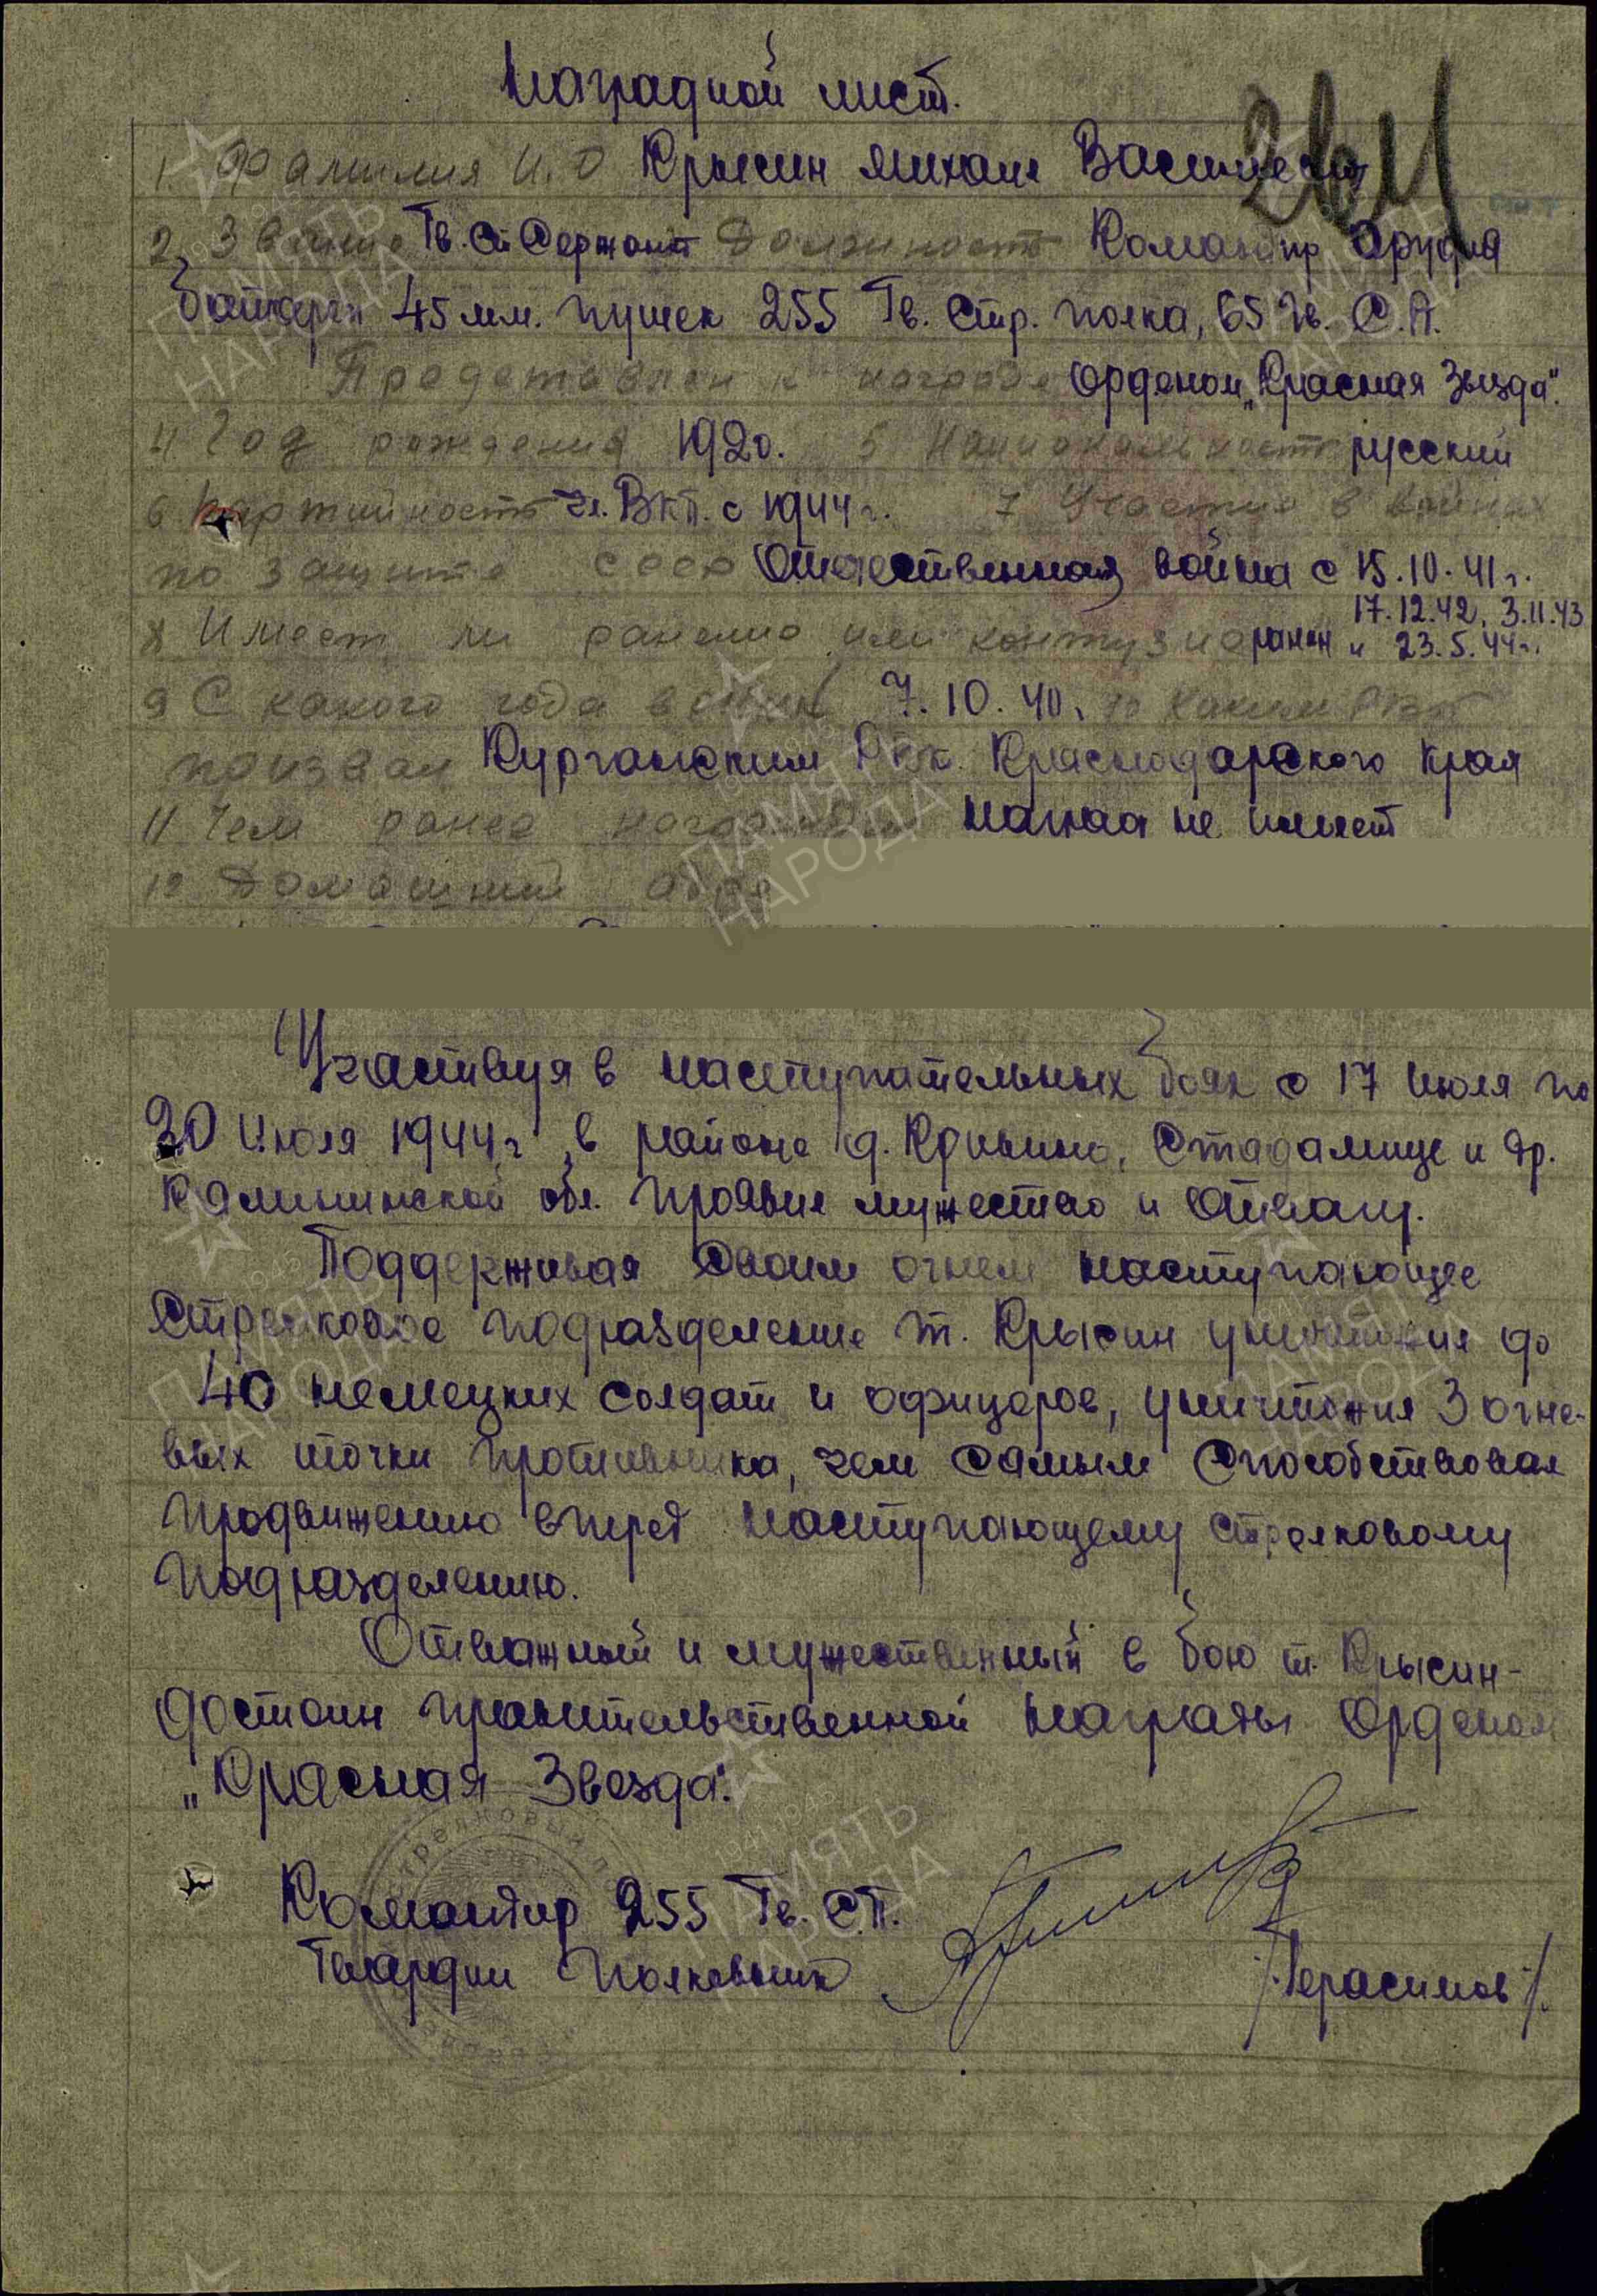 Наградной лист.
1. Фамилия И.О Крысин Михаил Васильевич
2, Звание Гв. Ст Сержант Должность Командир орудия
батареи 45 мм. пушек 255 Гв. Стр. полка, 65 Гв. С.Д.
Представлен к награде Орденом „Красная Звезда".
4 Год рождения 1920. 5 Национальность русский
6 Партийность чл. ВКП. с 1944 г. 7 Участие в войнах
по защите СССР Отечественная война с 15.10.41 г.
17.12.42, 3.11.43
8 Имеет ли ранение или контузию ранен и 23.5.44 г.
9 С какого года в 7.10.40, 10 Каким РВК
призван Курганским РВК. Краснодарского края
11 Чем ранее награжден наград не имеет
12 Домашний адрес
Участвуя в наступательных боях с 17 июля по
20 июля 1944 г в районе д. Кривино, и др.
Калининской обл. проявил мужество и отвагу.
Поддерживая своим огнем наступающее
стрелковое подразделение т. Крысин уничтожил до
40 немецких солдат и офицеров, уничтожил 3 огне-
вых точки противника, чем самым способствовал
продвижению вперед наступающему стрелковому
подразделению.
Отважный и мужественный в бою т. Крысин-
достоин правительственной награды Орденом
„Красная Звезда".
Командир 255 Гв. С.П.
Гвардии Полковник /Герасимов/.
ПАМЯТЬ
НАРОДА
1941 1945